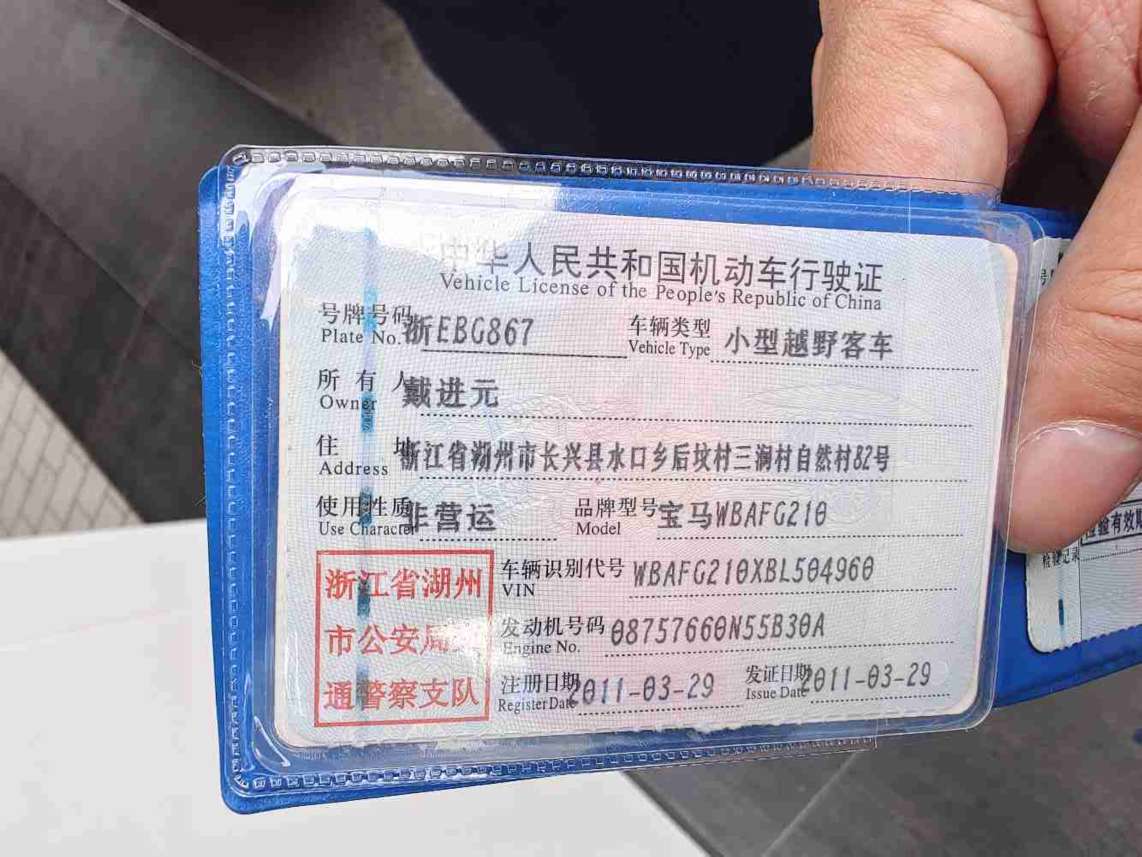 中华人民共和国机动车行驶证
Vehicle License of the People's Republic of China
号牌号码 浙EBG867 车辆类型 小型越野客车
Plate No. Vehicle Type
所有人 戴进元
Owner
住址 浙江省湖州市长兴县水口乡后坟村三涧村自然村82号
Address
使用性质 非营运 品牌型号 宝马WBAFG210
Use Character Model
浙江省湖州
市公安局交
通警察支队
车辆识别代号 WBAFG210XBL504960
VIN
发动机号码 08757660N55B30A
Engine No.
注册日期 2011-03-29 发证日期 2011-03-29
Register Date Issue Date
检验记录